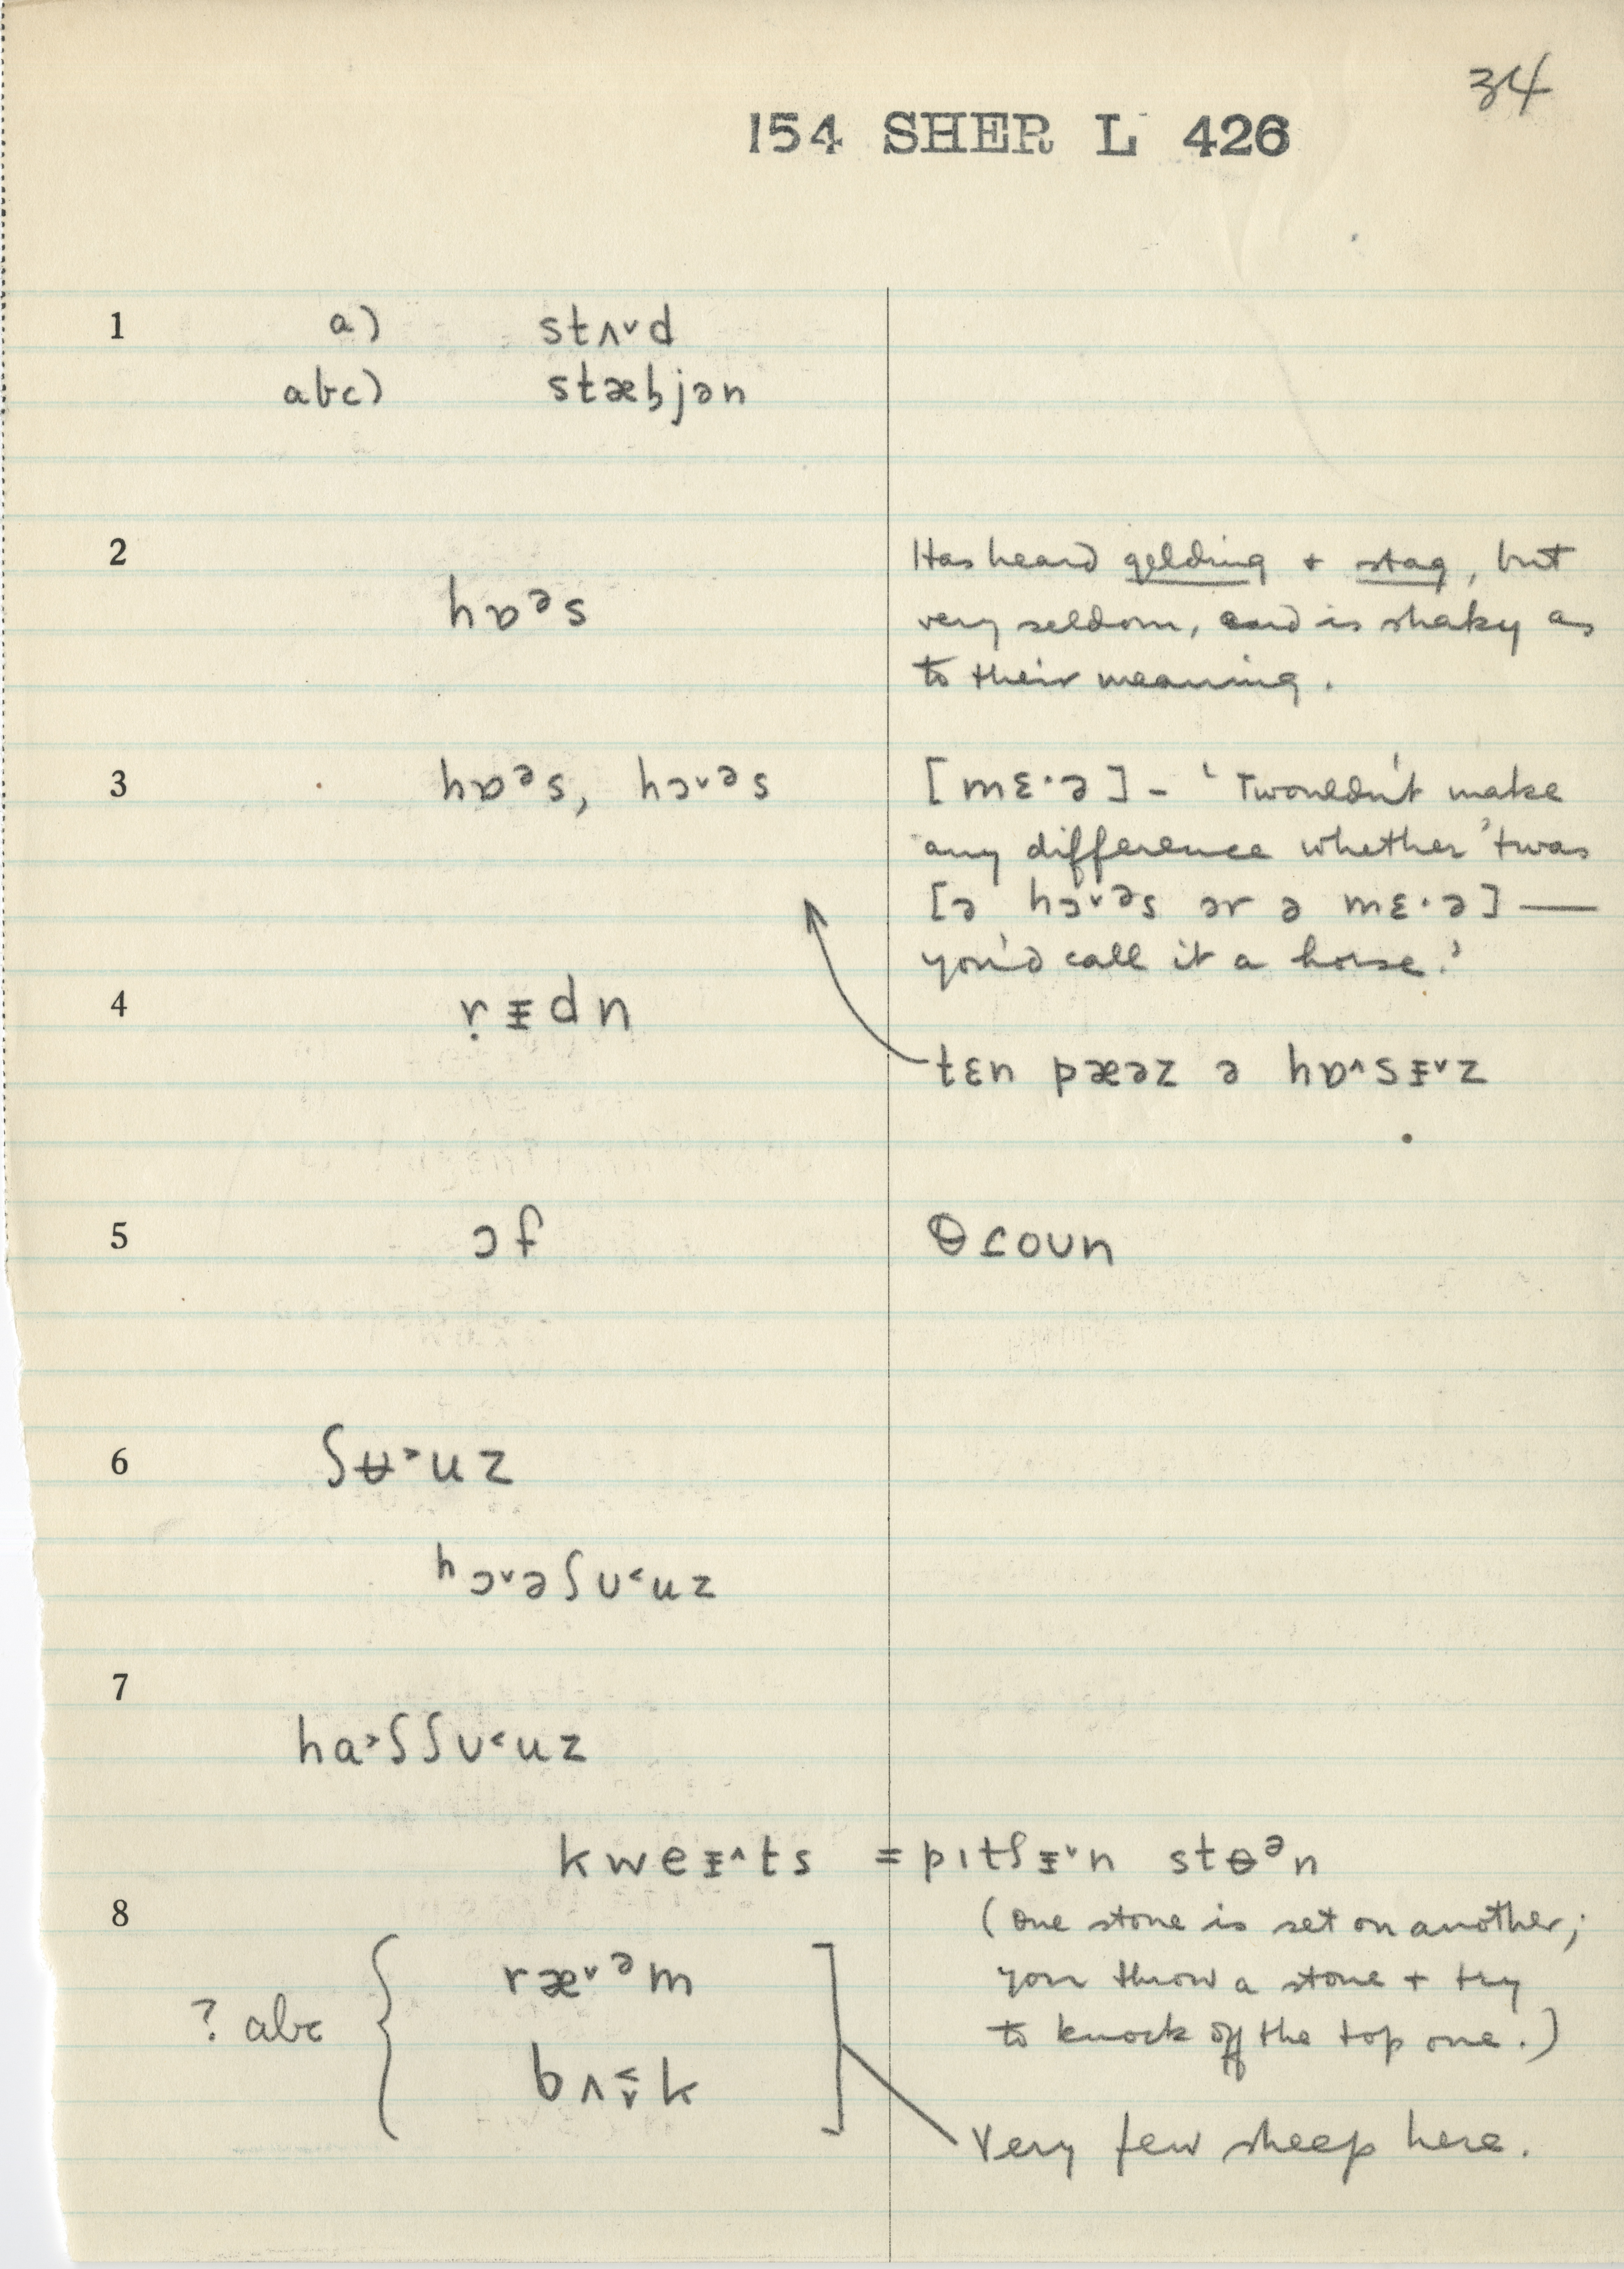 34
154 SHER L 426
1 a) stʌ˅d
abc) stæb̥jən
2 Has heard gelding + stag, but
hɒᵊs very seldom, and is shaky as
to their meaning.
3 hɒᵊs, hɔ˅ᵊs [mɛ·ə] - 'Twouldn't make
any difference whether 'twas
[ə hɔ˅ᵊs ər ə mɛ·ə] —
you'd call it a horse.'
4 ṛᵻdn
tɛn pæəz ə hɒ^sᵻ˅z
5 ɔf θroun
6 ʃʉ˃uz
hɔ˅əʃʊ˂uz
7
ha˃ʃʃʊ˂uz
kweᵻ^ts = pɪtʃᵻ˅n stɵᵊn
8 (one stone is set on another;
ræ˅ᵊm you throw a stone + try
? abc to knock off the top one.)
bʌ˂˅k
Very few sheep here.